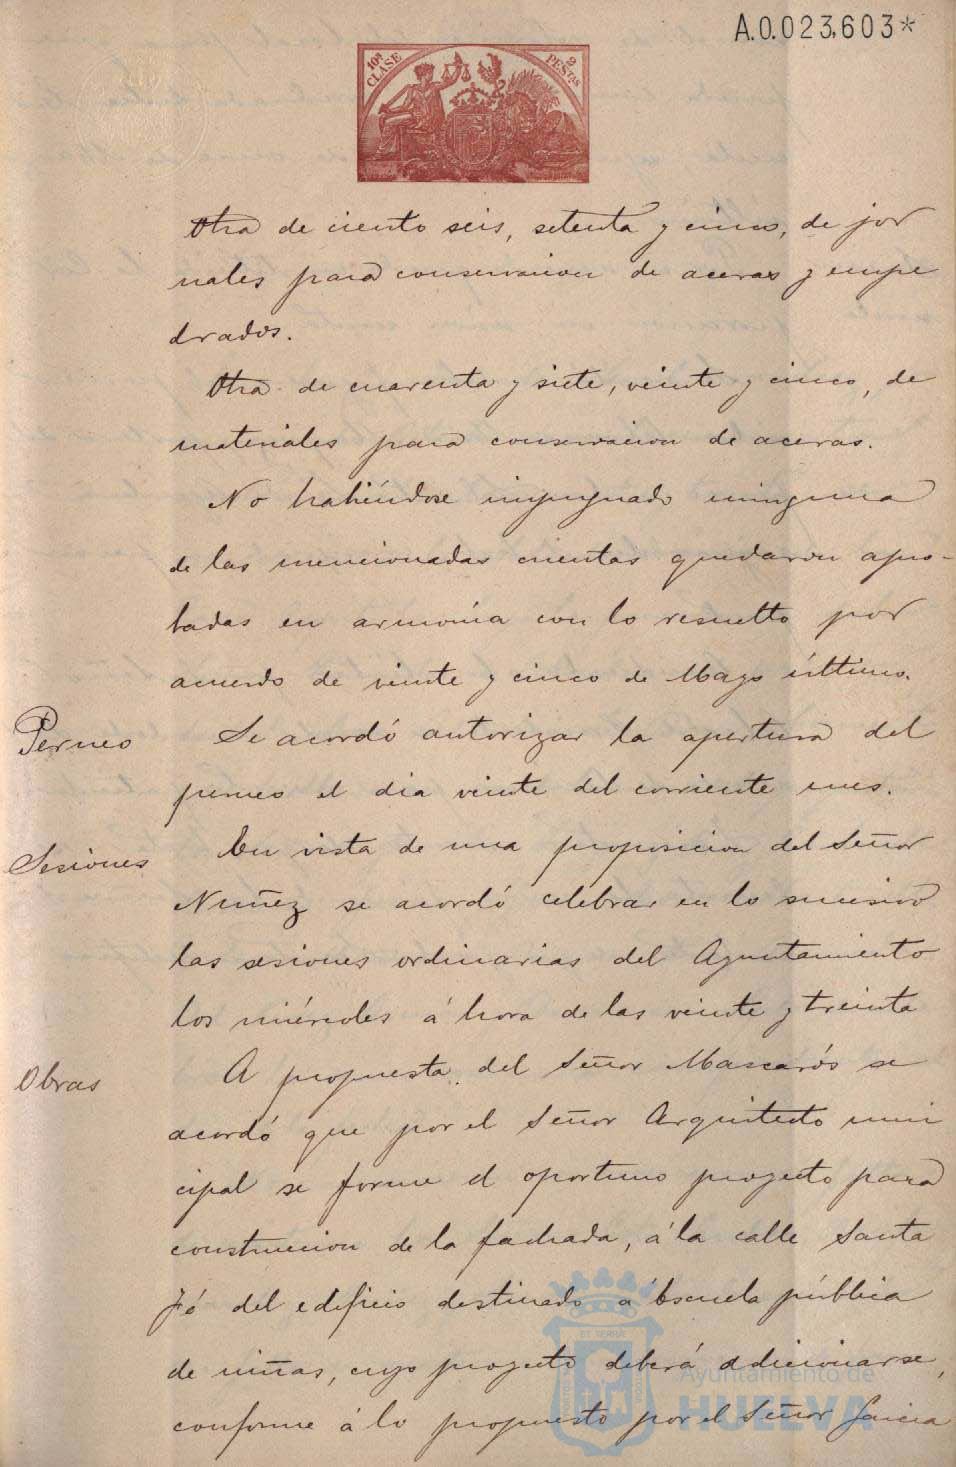 A.0.023,603*
10ª CLASE
2 PESTAS
Otra de ciento seis, setenta y cinco, de jor
nales para conservacion de aceras y empe
drados.
Otra de cuarenta y siete, veinte y cinco, de
materiales para conservacion de aceras.
No habiéndose impugnado ninguna
de las mencionadas cuentas quedaron apro-
badas en armonía con lo resuelto por
acuerdo de veinte y cinco de Mayo último.
Perneo
Se acordó autorizar la apertura del
perneo el dia veinte del corriente mes.
Sesiones
En vista de una proposicion del Señor
Nuñez se acordó celebrar en lo sucesivo
las sesiones ordinarias del Ayuntamiento
los miércoles á hora de las veinte y treinta
Obras
A propuesta del Señor Mascarós se
acordó que por el Señor Arquitecto muni
cipal se forme el oportuno proyecto para
construccion de la fachada, á la calle Santa
Fé del edificio destinado á Escuela pública
de niñas, cuyo proyecto deberá adicionarse,
conforme á lo propuesto por el Señor Garcia
Ayuntamiento de
HUELVA